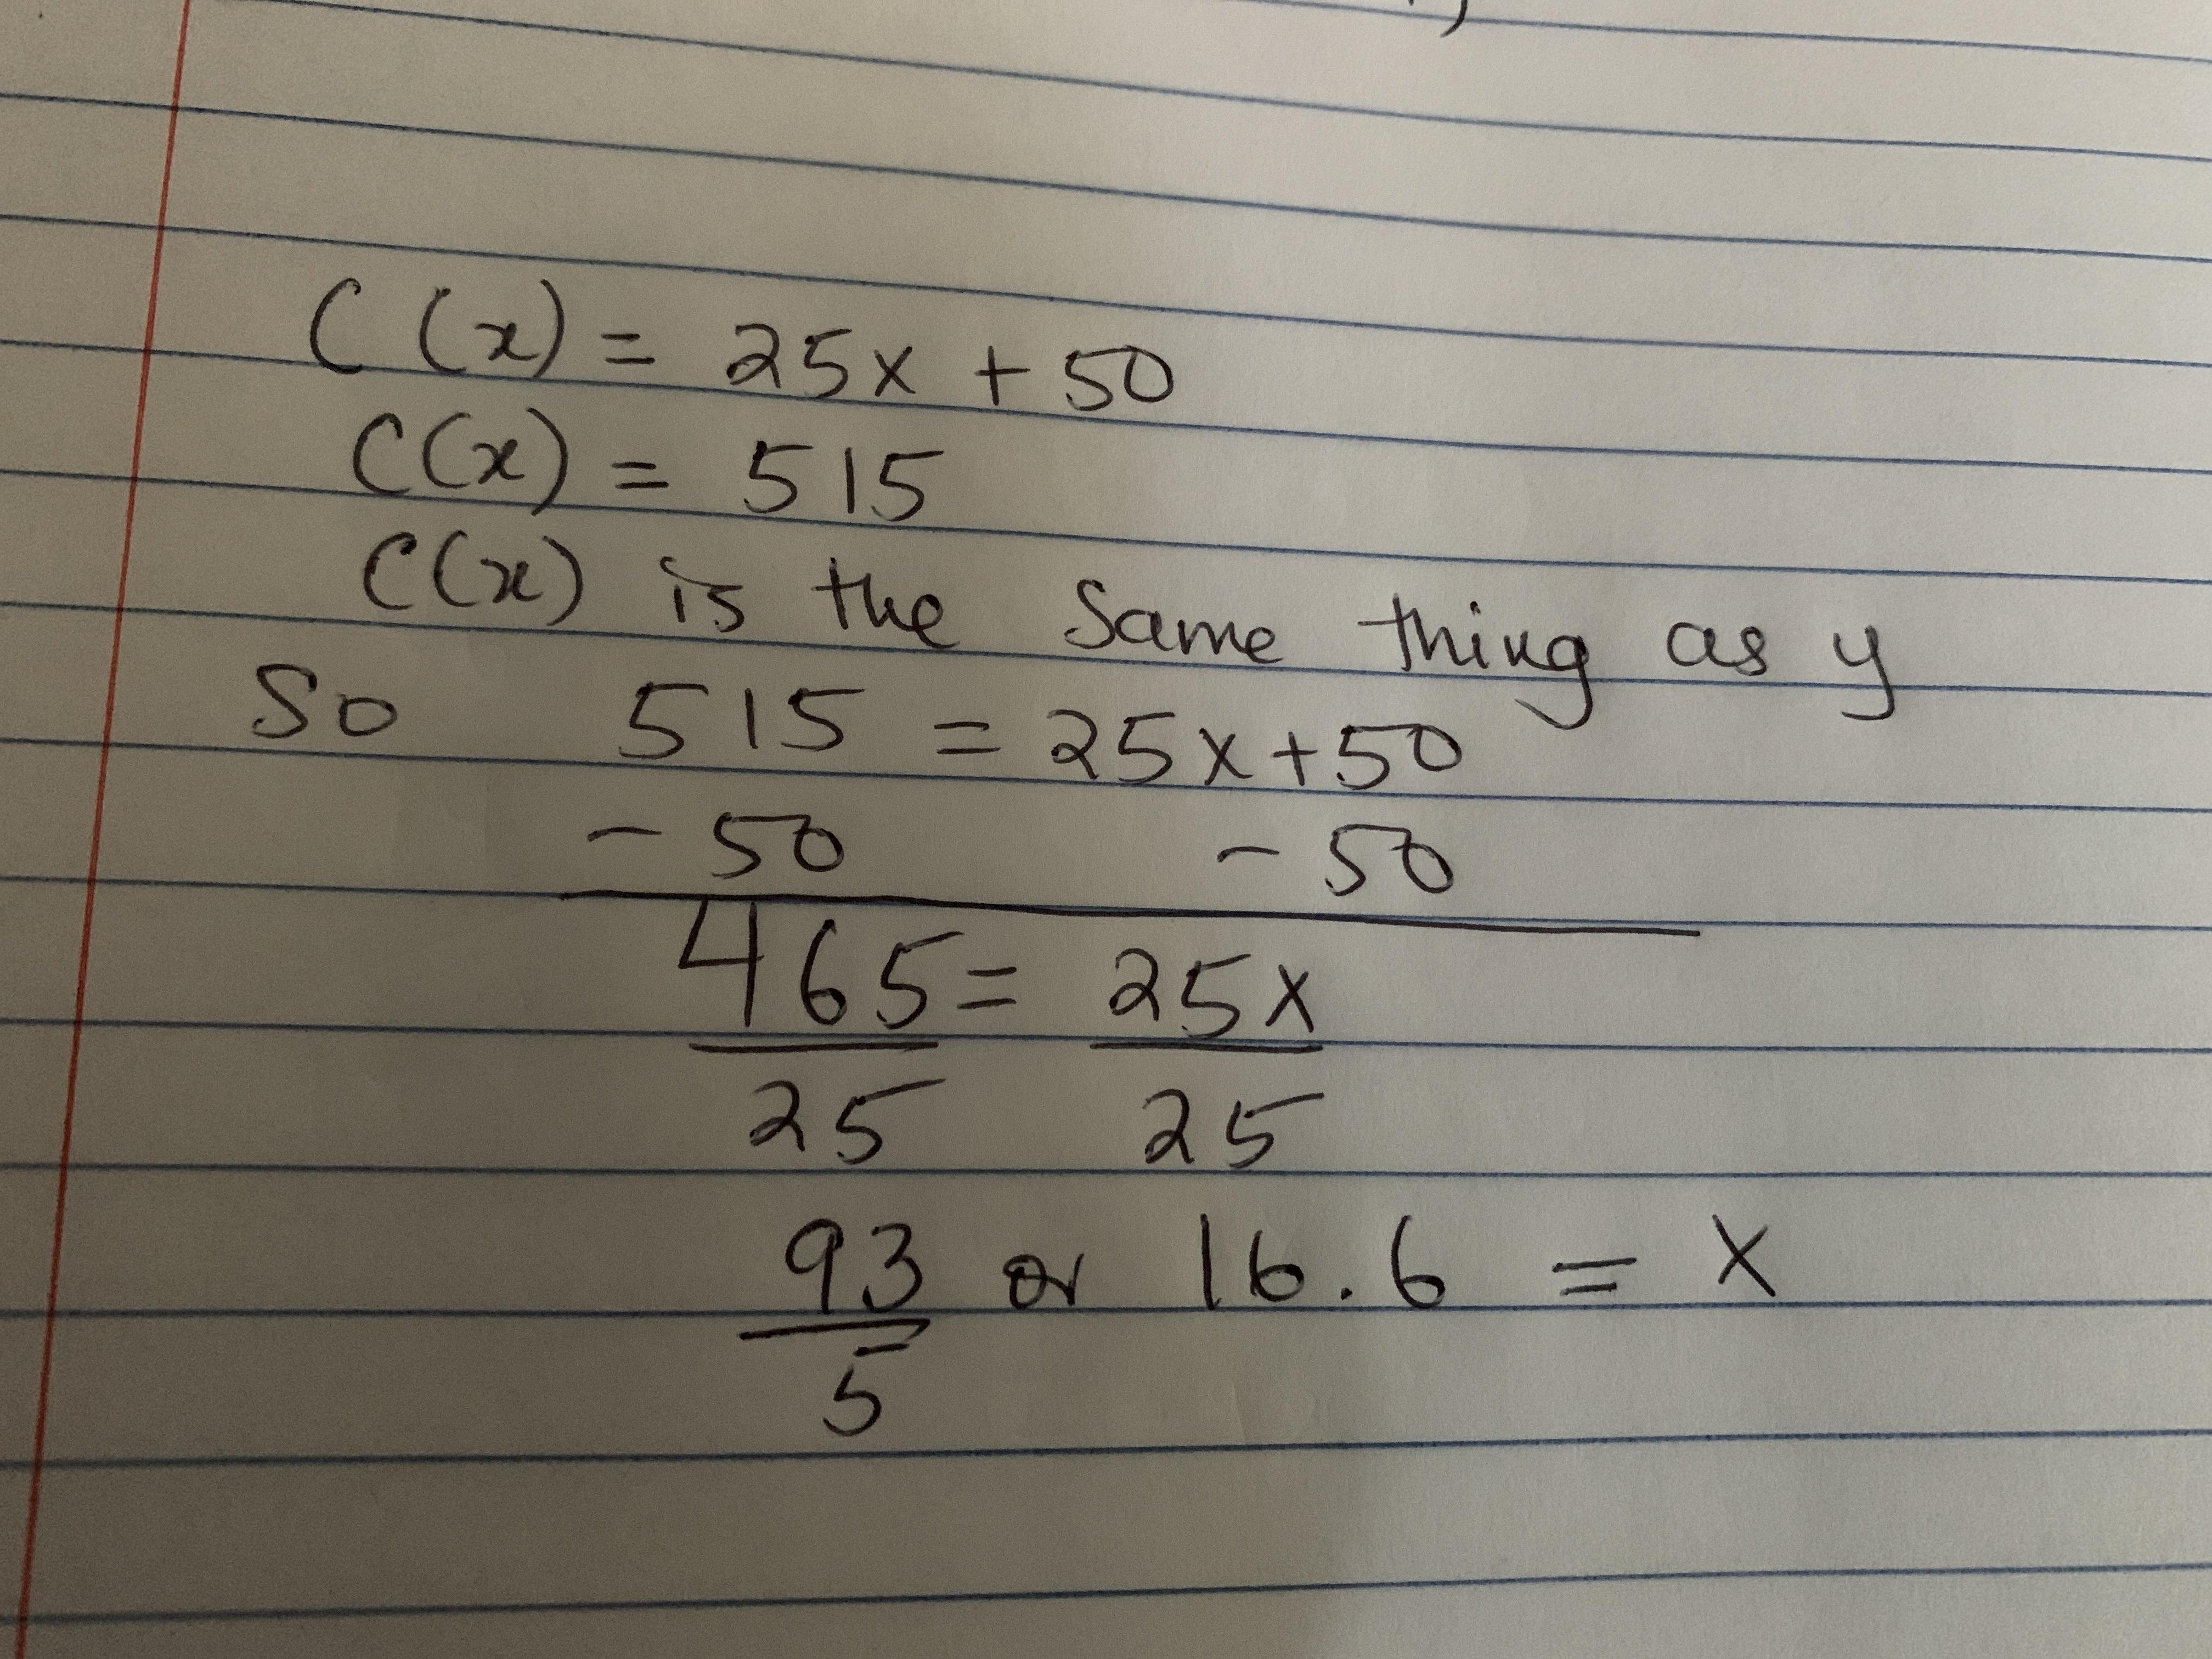 C(x) = 25x + 50
C(x) = 515
C(x) is the same thing as y
So 515 = 25x+50
- 50 - 50
465 = 25x
25 25
93 or 16.6 = x
5